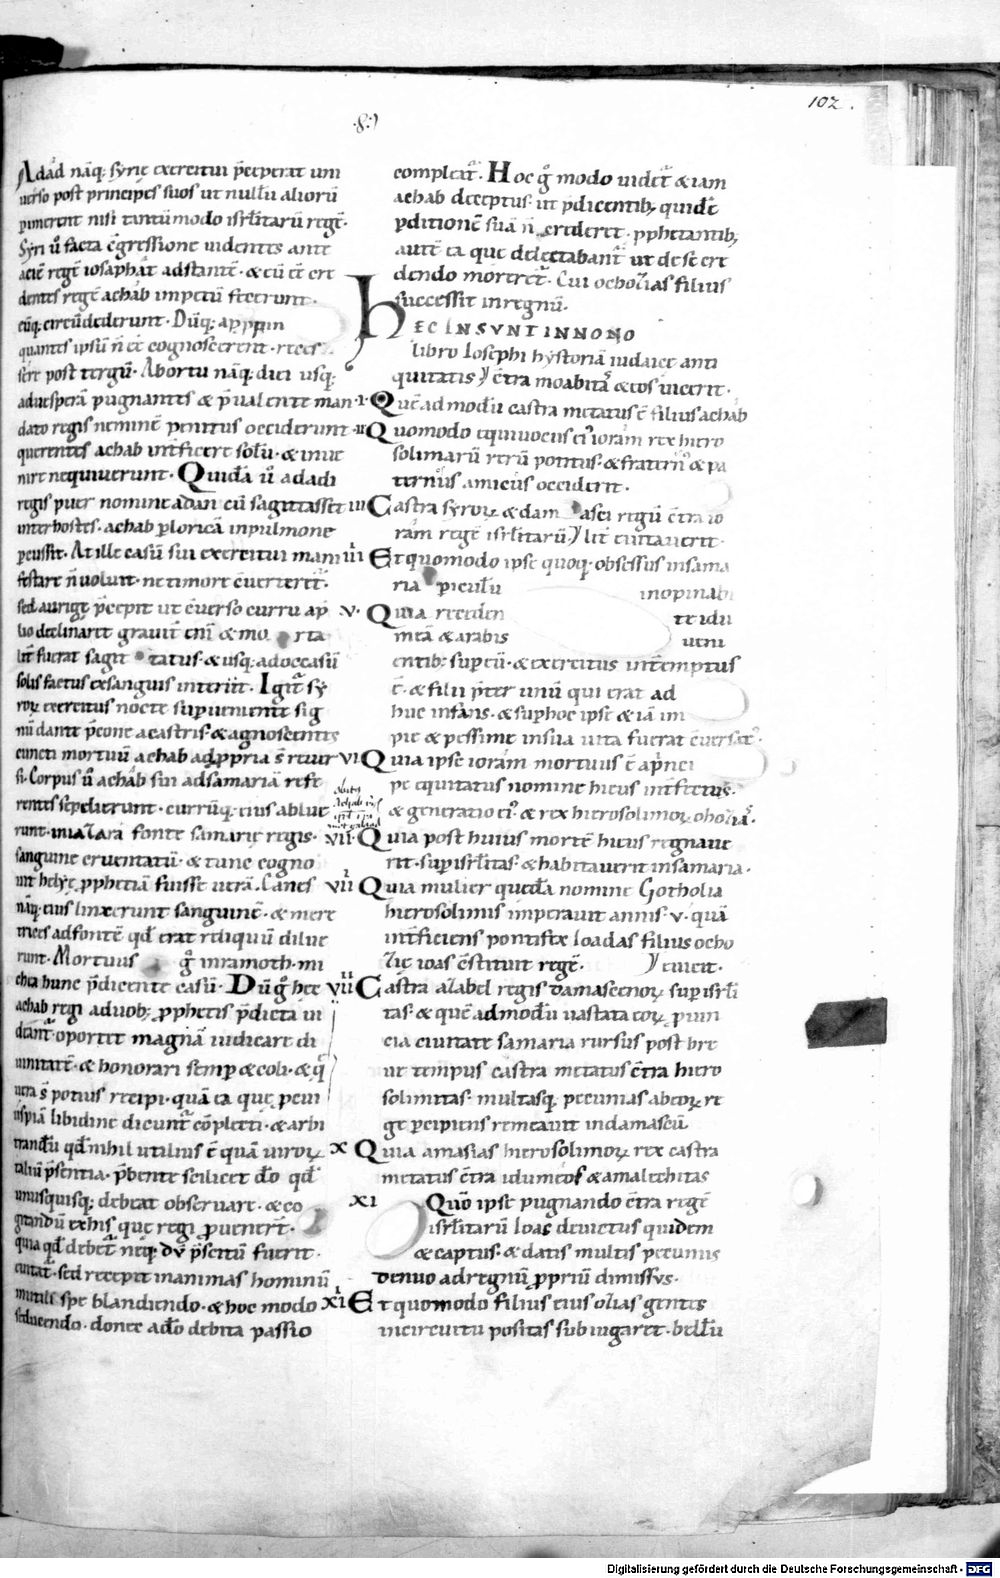 102.
.8.
Adad nāq; syrię exercitui p̄ceperat uni
uerso post principes suos ut nullū aliorū
pimerent nisi tantūmodo isrl̄itarū regē.
Syri ů facta c̄gressione uidentes ante
aciē regē iosaphat adstantē · & eū ēē cre
dentes regē achab impetū fecerunt.
eūq; circūdederunt · Dūq; appropin
quantes ipsū n̄ ēē cognoscerent · reces
sere post tergū · Ab ortu nāq; diei usq;
aduesperā pugnantes & p̄ualente man
dato regis neminē penitus occiderunt
querentes achab int̄ficere solū · & inue
nire nequiuerunt · Quidā ů adadi
regis puer nomine adan cū sagittasset
inter hostes · achab p loricā in pulmone
pcussit. At ille casū sui exercitui mani
festare n̄ uoluit · ne timore c̄uerteret̄.
sed aurigę p̄cepit ut c̄uerso curru ap̄
lio declinaret grauit̄ eni & mo rta
lit̄ fuerat sagit tatus · & usq; ad occasū
solis factus exsanguis interiit · Igit̄ sy
roꝝ exercitus nocte superueniente sig
nū dante p̄cone a castris · & agnoscentes
cuncti mortuū achab ad ppria s̄ reuer
si. Corpus ů achab sui ad samariā refe
rentes sepelierunt · currūq; eius ablue
runt · in ialara fonte samarię regis ·
sanguine cruentatū · & tunc cogno
uit helyę pphetiā fuisse uerā. Canes
nāq; eius linxerunt sanguinē · & mere
trices ad fontē qd̄ erat reliquū dilue
runt · Mortuus ē g̊ in ramoth · mi
chea hunc p̄dicente casū · Dū g̊ hęc
achab regi a duob; pphetis p̄dicta ui
deant̄ · oportet magnā iudicare di
uinitatē · & honorari semp & coli · & q̄
uera s̄ potius recipi · quā ea quę p cui
uspiā libidine dicunt̄ cōplecti · & arbi
trandū qd̄ nihil utilius ē quā uiroꝝ
taliū p̄sentia · p̄bente scilicet dō qd̄
unusquisq; debeat obseruare · & co
gitandū ex his quę regi puenert̄ ·
quia qd̄ debet̄ neq; dū p̄scitū fuerit ·
euitat̄ · sed recepit in animas hominū
inutili spe blandiendo · & hoc modo
seducendo · donec ad ō debita passio
compleat̄ · Hoc g̊ modo uidet̄ & iam
achab deceptus · ut p̄dicentib; quidē
pditionē suā n̄ crederet · pphetantib;
autē ea quę delectabant̄ ut de se cre
dendo moreret̄ · Cui ocholias filius
successit in regnū.
HEC INSVNT IN NONO
libro Iosephi hystoriā iudaicę anti
quitatis c̄tra moabitas & eos uicerit ·
I · Quēadmodū castra metatus ē filius achab
II · Quomodo equiuocus ei ioram rex hiero
solimarū rerū potitus · & fraternos & pa
ternos amicos occiderit ·
III Castra syroꝝ & dam asci regū c̄tra io
rām regē isrl̄itarū · lit̄ euitauerit ·
IIII Et quomodo ipse quoq; obsessus in sama
ria piculū inopinabi
V · Quia receden te idu
meā & arabis ueni
entib; sup eū · & exercitus int̄emptus
ē · & filii p̄ter unū qui erat ad
huc infans · & sup hoc ipse & iā im
pie & pessime in sua uita fuerat c̄uersat̄ ·
VI Quia ipse iorām mortuus ē ap̄nei
pe equitatus nomine hieus int̄fectus ·
& generatio ei · & rex hierosolimoꝝ oholias ·
VII · Quia post huius mortē hieus regnaue
rit · sup isrl̄itas · & habitauerit in samaria ·
VIII Quia mulier quędā nomine Gotholia
hierosolimis imperauit annis · V · quā
int̄ficiens pontifex Ioadas filius ocho
lię ioas c̄stituit regē · euicit ·
VIIII Castra azabel regis damascenoꝝ sup isrl̄i
tas · & quēadmodū uastata eoꝝ puin
cia ciuitate samaria rursus post bre
ue tempus castra metatus c̄tra hiero
solimitas · multasq; pecunias ab eoꝝ re
ge pcipiens remeauit in damascū
X Quia amasias hierosolimoꝝ rex castra
metatus c̄tra idumeos & amalechitas
XI Quō ipse pugnando c̄tra regē
isrl̄itarū Ioas deuictus quidem
& captus · & datis multis pecuniis
denuo ad regnū ppriū dimissus ·
XII Et quomodo filius eius ozias gentes
in circuitu positas subiugaret · bellū
Digitalisierung gefördert durch die Deutsche Forschungsgemeinschaft - DFG